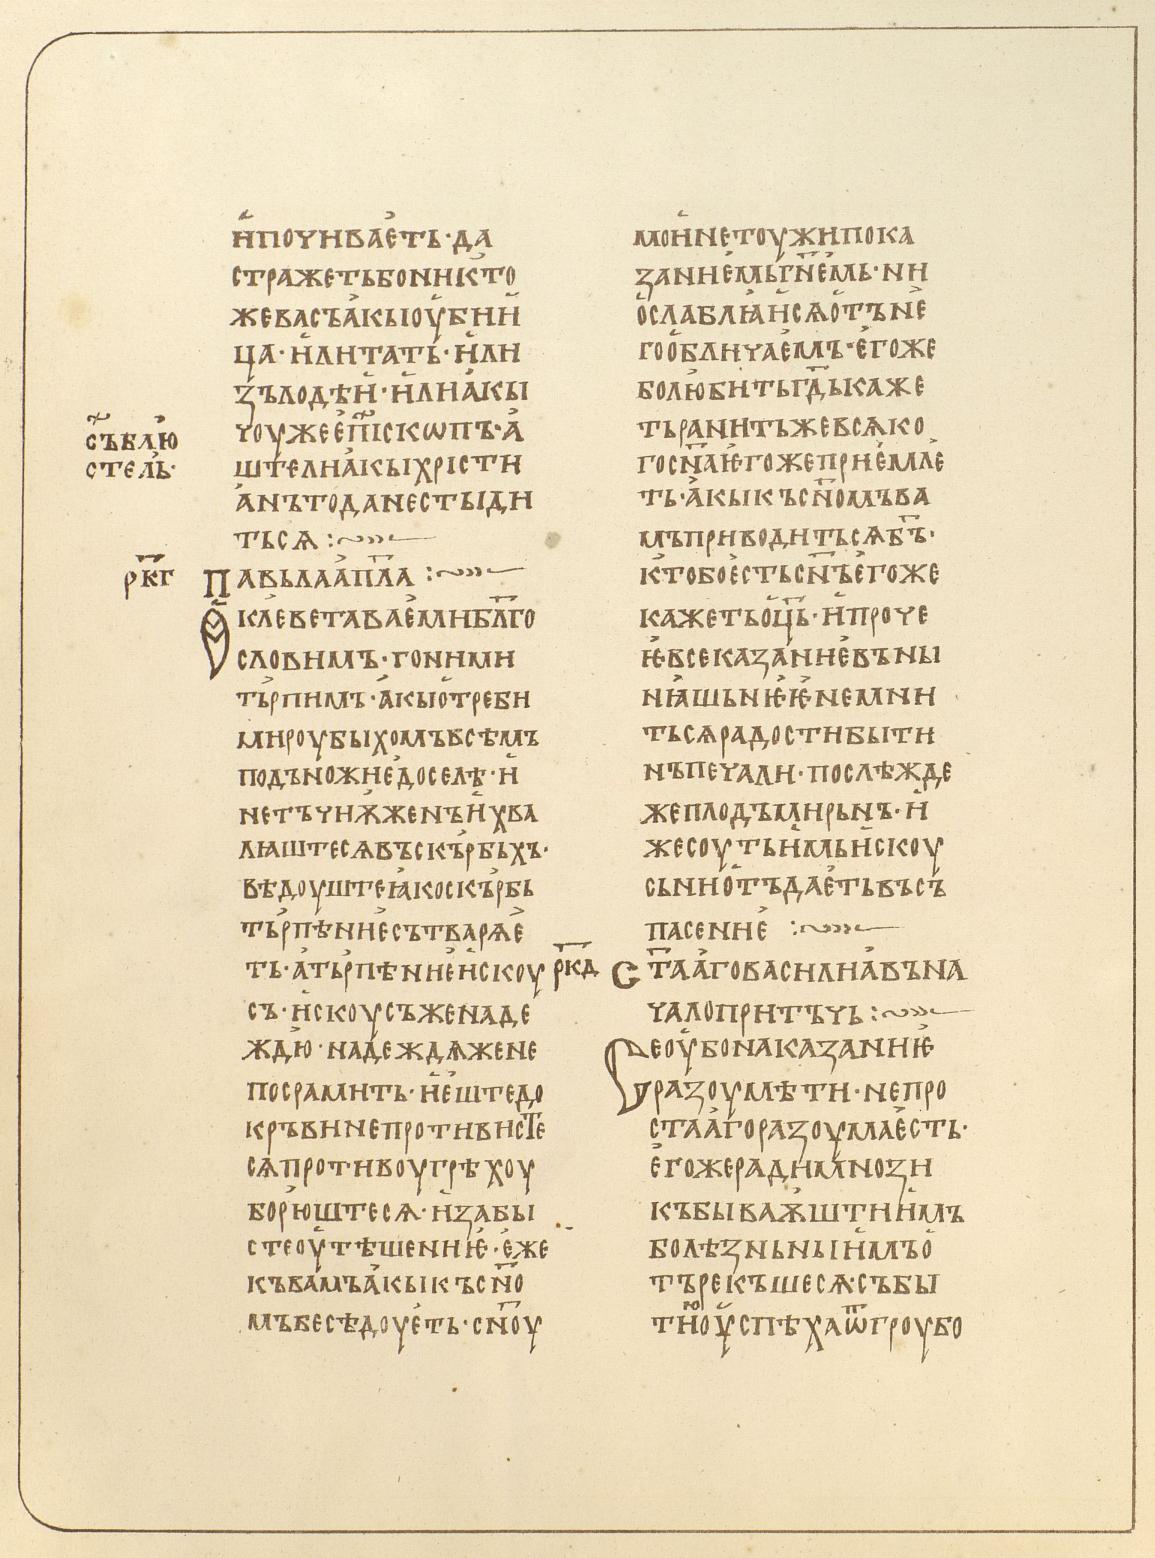 и҆почивае҆ть · да
стражетьбоникто
жевасъа҆кыоу҆бии҆
ца · и҆литать · и҆ли
зълодѣи҆ · и҆лиа҆кы
чоужее҆пⷭ҇искѡпъ · а҆
съблю҆
стель ·
штелиа҆кыхрісти
а҆нътоданестыди
тьсѧ :~»»—
рк҃г
павьлаа҆пⷭ҇ла :~»»—
Оклеветавае҆мибл҃го
словимъ · гоними
тьрпимъ · а҆кыо҆треби
мироубыхомъвсѣмъ
подъножиедоселѣ · и҆
нетъчиѭженъи҆хва
лꙗштесѧвъскърбьхъ ·
вѣдоуштеꙗкоскърбь
тьрпѣниесътварѧе҆
ть · а҆тьрпѣниеи҆скоу
съ · и҆скоусъженаде
ждю · надеждѧжене
посрамить · не҆штедо
кръвинепротивистⷭ҇е
сѧпротивоугрѣхоу
борюштесѧ · и҆забы
стеоу҆тѣшениѥ · е҆же
къвамъа҆кыкъсн҃о
мъбесѣдоуе҆ть · сн҃оу
мои҆нетоужипока
зание҆мьг҃не҆мь · ни
о҆слаблꙗи҆сѧо҆тъне҆
гоо҆бличае҆мъ · е҆гоже
болюбитьгⷭ҇дькаже
тьранитъжевсѧко
госн҃аѥ҆гожеприе҆мле
ть · а҆кыкъсн҃омъва
мъприводитьсѧб҃ъ ·
ктобое҆стьсн҃ъе҆гоже
кажетьоц҃ь · и҆проче
ѥ҆всеказание҆въны
нꙗшьнѥ҆ѥ҆немни
тьсѧрадостибыти
нъпечали · послѣжде
жеплодъмирьнъ · и҆
жесоутьи҆мьи҆скоу
сьнио҆тъдае҆тьвъсъ
пасение҆ :~»»—
рк҃д
ст҃аа҆говасилиа҆въна
чалопритъчь :~»»—
Сеоу҆бонаказаниѥ҆
разоумѣти · непро
стаа҆горазоумае҆сть ·
е҆гожерадимнози
къбываѭштии҆мъ
болѣзньныи҆мъо҆
търекъшесѧ · събы
тию҆оу҆спѣхаѿгроубо